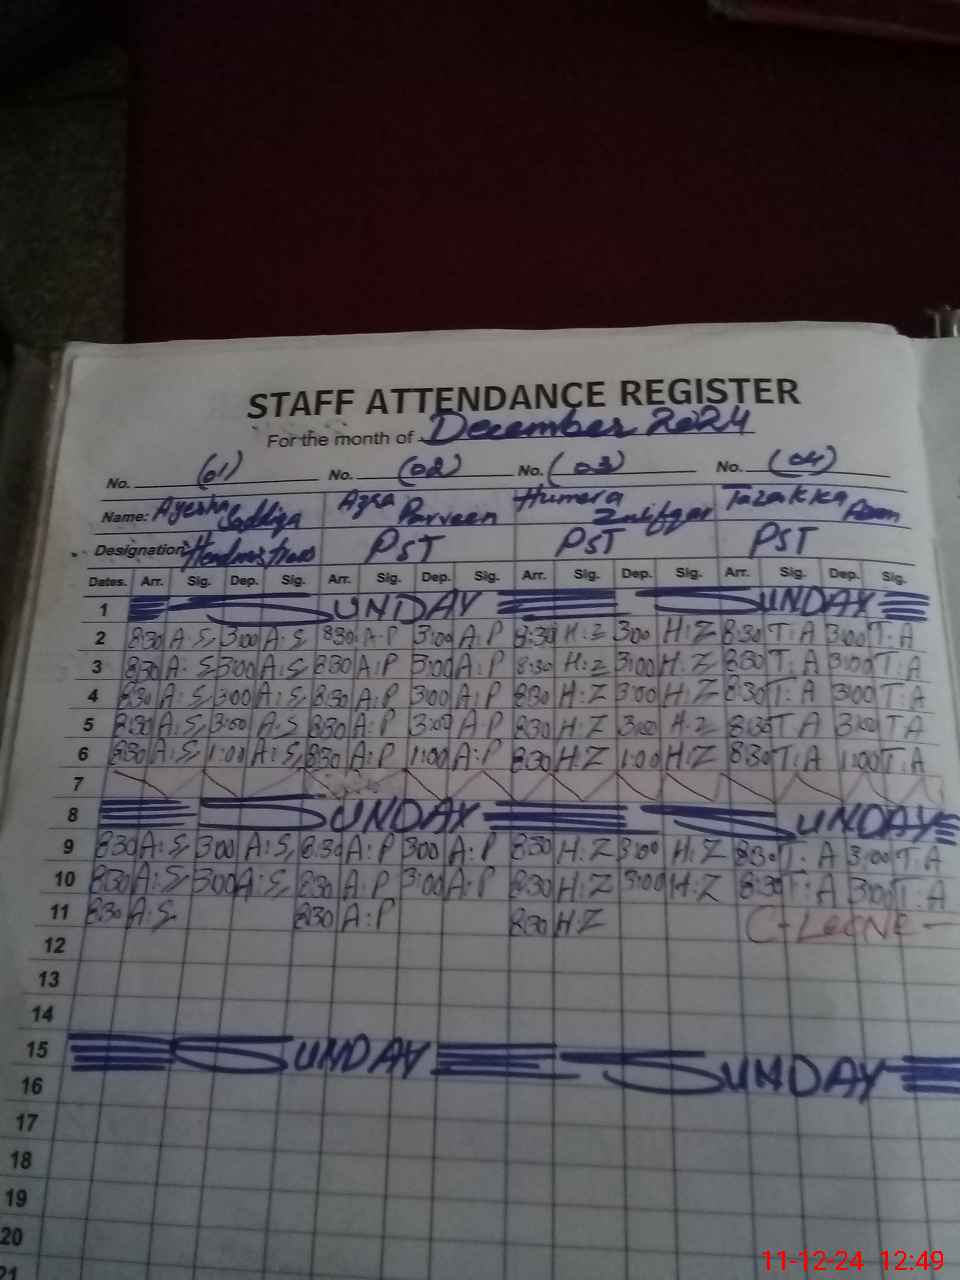 STAFF ATTENDANCE REGISTER
For the month of December 2024
No. (01) No. (02) No. (03) No. (04)
Name: Ayesha Saddiqa Azra Parveen Humera Zulifqar Tazakka
Designation PST PST PST
Dates. Arr. Sig. Dep. Sig. Arr. Sig. Dep. Sig. Arr. Sig. Dep. Sig. Arr. Sig. Dep. Sig.
1 SUNDAY SUNDAY
2 8:30 A:S 3:00 A:S 8:30 A:P 3:00 A:P 8:30 H:Z 3:00 H:Z 8:30 T:A 3:00 T:A
3 8:30 A:S 3:00 A:S 8:30 A:P 3:00 A:P 8:30 H:Z 3:00 H:Z 8:30 T:A 3:00 T:A
4 8:30 A:S 3:00 A:S 8:30 A:P 3:00 A:P 8:30 H:Z 3:00 H:Z 8:30 T:A 3:00 T:A
5 8:30 A:S 3:00 A:S 8:30 A:P 3:00 A:P 8:30 H:Z 3:00 H:Z 8:30 T:A 3:00 T:A
6 8:30 A:S 1:00 A:S 8:30 A:P 1:00 A:P 8:30 H:Z 1:00 H:Z 8:30 T:A 1:00 T:A
7
8 SUNDAY SUNDAY
9 8:30 A:S 3:00 A:S 8:30 A:P 3:00 A:P 8:30 H:Z 3:00 H:Z 8:30 T:A 3:00 T:A
10 8:30 A:S 3:00 A:S 8:30 A:P 3:00 A:P 8:30 H:Z 3:00 H:Z 8:30 T:A 3:00 T:A
11 8:30 A:S 8:30 A:P 8:30 H:Z C-Leave
12
13
14
15 SUNDAY SUNDAY
16
17
18
19
20
21
11-12-24 12:49